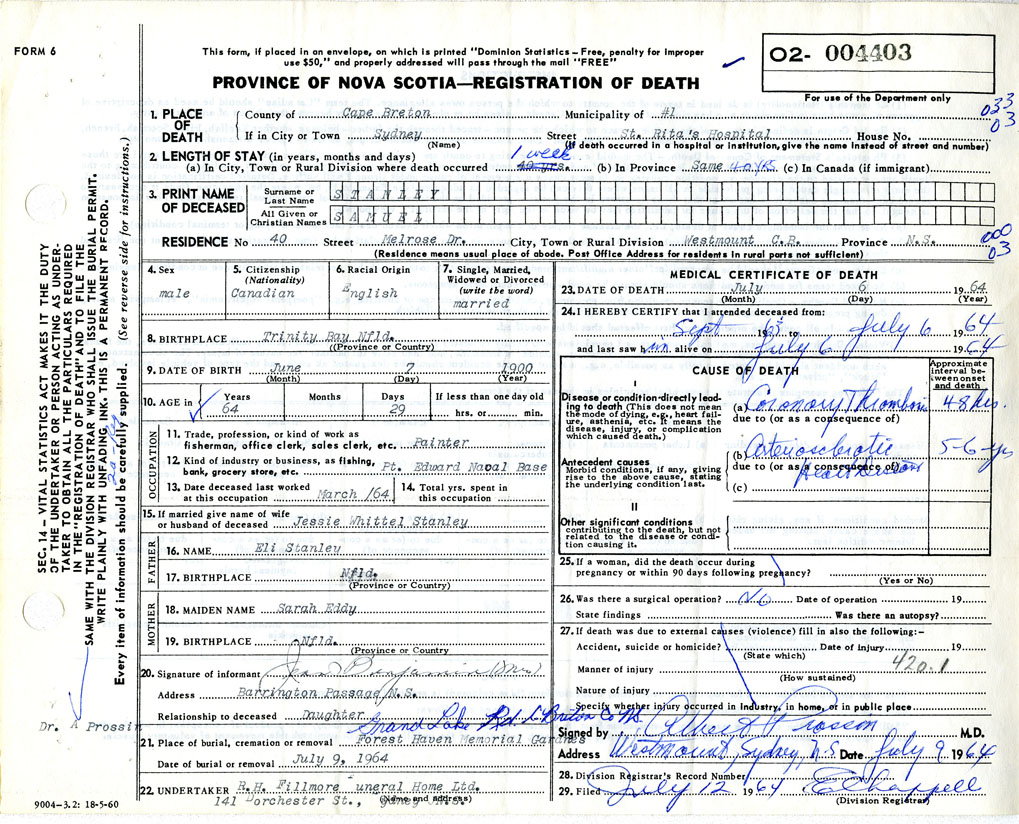 FORM 6
This form, if placed in an envelope, on which is printed "Dominion Statistics – Free, penalty for improper
use $50," and properly addressed will pass through the mail "FREE"
O2- 004403
PROVINCE OF NOVA SCOTIA—REGISTRATION OF DEATH
For use of the Department only
033
03
1. PLACE OF DEATH
County of Cape Breton Municipality of #1
If in City or Town Sydney Street St. Rita's Hospital House No.
(Name) (If death occurred in a hospital or institution, give the name instead of street and number)
2. LENGTH OF STAY (in years, months and days) 1 week
(a) In City, Town or Rural Division where death occurred 40 yrs. (b) In Province Same 40 YRS (c) In Canada (if immigrant)
3. PRINT NAME OF DECEASED
Surname or Last Name STANLEY
All Given or Christian Names SAMUEL
000
03
RESIDENCE No 40 Street Melrose Dr. City, Town or Rural Division Westmount C.B. Province N.S.
(Residence means usual place of abode. Post Office Address for residents in rural parts not sufficient)
4. Sex
male
5. Citizenship
(Nationality)
Canadian
6. Racial Origin
English
7. Single, Married,
Widowed or Divorced
(write the word)
married
8. BIRTHPLACE Trinity Bay Nfld.
(Province or Country)
9. DATE OF BIRTH June 7 1900
(Month) (Day) (Year)
10. AGE in Years Months Days If less than one day old
64 29 hrs. or min.
OCCUPATION
11. Trade, profession, or kind of work as
fisherman, office clerk, sales clerk, etc. Painter
12. Kind of industry or business, as fishing,
bank, grocery store, etc. Pt. Edward Naval Base
13. Date deceased last worked
at this occupation March /64
14. Total yrs. spent in
this occupation
15. If married give name of wife
or husband of deceased Jessie Whittel Stanley
FATHER
16. NAME Eli Stanley
17. BIRTHPLACE Nfld.
(Province or Country)
MOTHER
18. MAIDEN NAME Sarah Eddy
19. BIRTHPLACE Nfld.
(Province or Country)
20. Signature of informant Benjamin
Address Barrington Passage N.S.
Relationship to deceased Daughter
Grand Lake Rd. C. Breton Co NS.
21. Place of burial, cremation or removal Forest Haven Memorial Gardnes
Date of burial or removal July 9, 1964
22. UNDERTAKER R.H. Fillmore uneral Home Ltd.
(Name and address)
141 Dorchester St.,
MEDICAL CERTIFICATE OF DEATH
23. DATE OF DEATH July 6 1964
(Month) (Day) (Year)
24. I HEREBY CERTIFY that I attended deceased from:
Sept 1963 to July 6 1964
and last saw him alive on July 6 1964
CAUSE OF DEATH
Approximate
interval be-
tween onset
and death
I
Disease or condition directly lead-
ing to death (This does not mean
the mode of dying, e.g., heart fail-
ure, asthenia, etc. It means the
disease, injury, or complication
which caused death.)
(a) Coronary Thrombosis 48 hrs.
due to (or as a consequence of)
(b) Arteriosclerotic 5-6 yrs
due to (or as a consequence of)
heart disease
Antecedent causes
Morbid conditions, if any, giving
rise to the above cause, stating
the underlying condition last.
(c)
II
Other significant conditions
contributing to the death, but not
related to the disease or condi-
tion causing it.
25. If a woman, did the death occur during
pregnancy or within 90 days following pregnancy?
(Yes or No)
26. Was there a surgical operation? No Date of operation 19
State findings Was there an autopsy?
27. If death was due to external causes (violence) fill in also the following:–
Accident, suicide or homicide? Date of injury 19
(State which)
420.1
Manner of injury
(How sustained)
Nature of injury
Specify whether injury occurred in industry, in home, or in public place
Signed by Albert Prossin M.D.
Address Westmount, Sydney, N.S Date July 9 1964
28. Division Registrar's Record Number
29. Filed July 12 1964 Chappell
(Division Registrar)
SEC. 14 – VITAL STATISTICS ACT MAKES IT THE DUTY
OF THE UNDERTAKER OR PERSON ACTING AS UNDER-
TAKER TO OBTAIN ALL THE PARTICULARS REQUIRED
IN THE "REGISTRATION OF DEATH" AND TO FILE THE
SAME WITH THE DIVISION REGISTRAR WHO SHALL ISSUE THE BURIAL PERMIT.
WRITE PLAINLY WITH UNFADING INK. THIS IS A PERMANENT RECORD.
Every item of information should be carefully supplied. (See reverse side for instructions.)
Dr. A Prossin
9004–3.2: 18-5-60